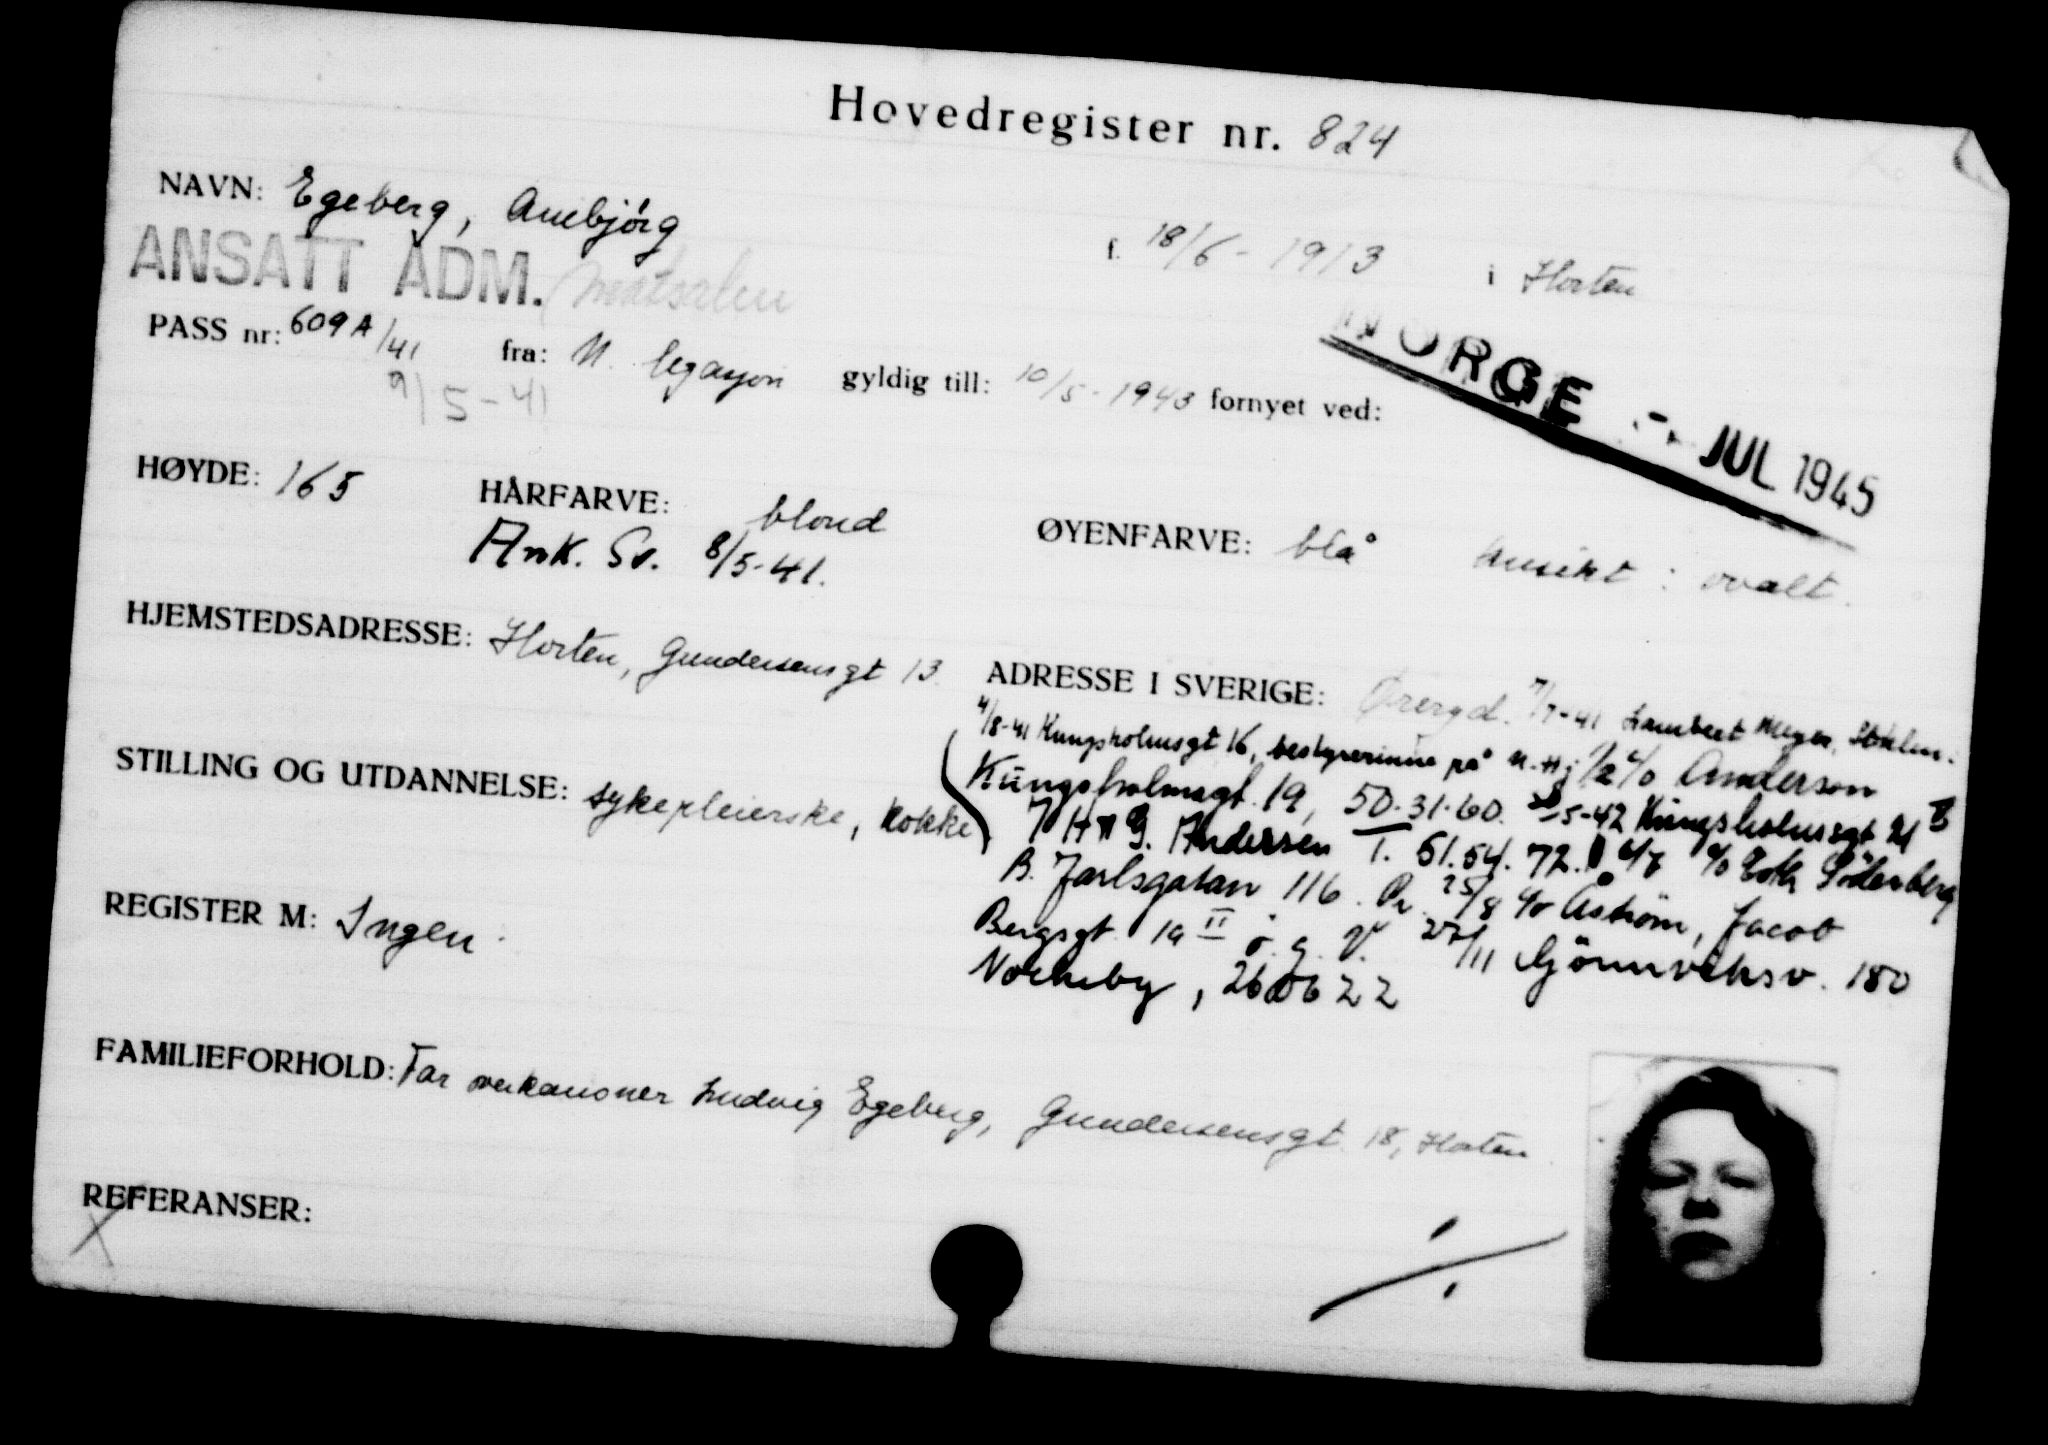 Hovedregister nr. 824
NAVN: Egeberg, Anebjørg
f. 18/6 - 1913 i Horten
ANSATT ADM. matsalen
PASS nr: 609A/41 fra: N. legasjon gyldig till: 10/5 - 1943 fornyet ved:
9/5-41
NORGE - JUL 1945
HØYDE: 165 HÅRFARVE: blond ØYENFARVE: blå Ansikt: ovalt.
Ank. Sv. 8/5-41.
HJEMSTEDSADRESSE: Horten, Gundersensgt 13.
ADRESSE I SVERIGE: 7/7-41 Lambert Meyer, Sthlm.
4/8-41 Kungsholmsgt 16, bestyrerinne på N.Hj. c/o Anderson
Kungsholmsgt. 19, 50.31.60. 5-42 Kungsholmsgt 21
STILLING OG UTDANNELSE: sykepleierske, kokke
G. Andersen T. 51.54.72. c/o Söderberg
B. Jarlsgatan 116. 25/8 c/o Åström, Jacob
REGISTER M: Ingen.
Bergsgt. 19 II ö. g. 27/11 180
Nockeby, 260622
FAMILIEFORHOLD: Far Ludvig Egeberg, Gundersensgt. 18, Horten.
REFERANSER: